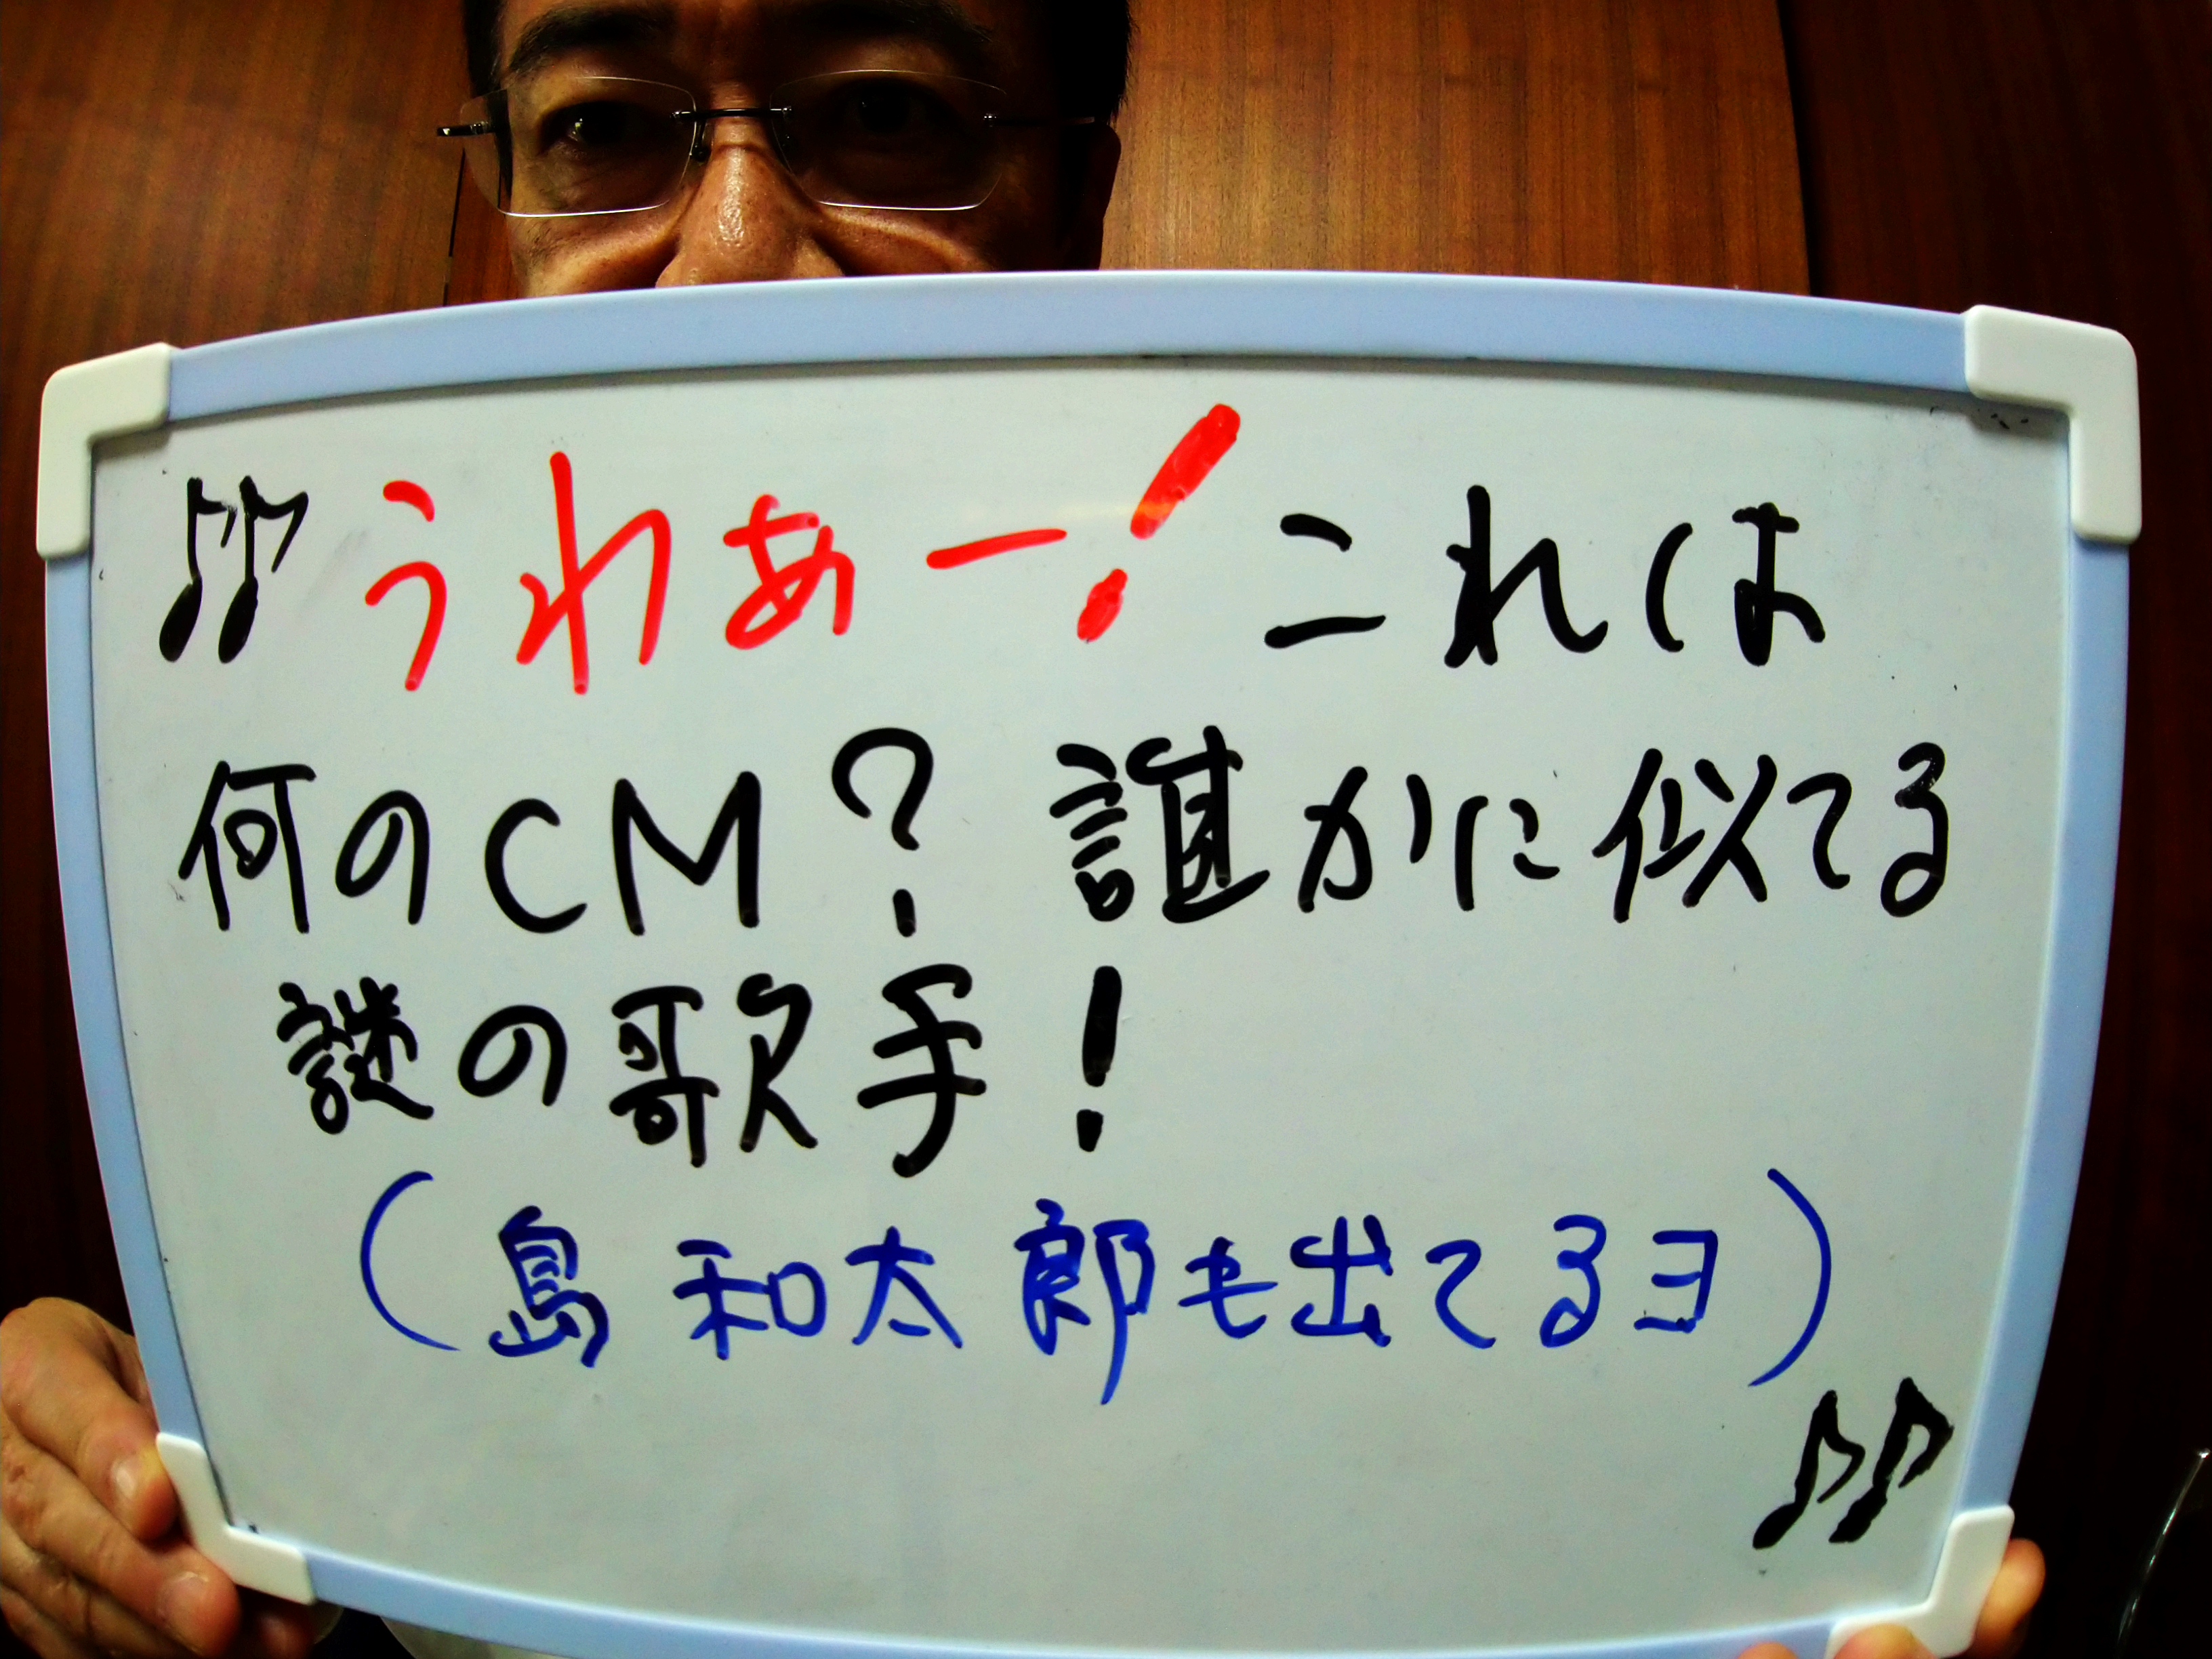 ♪♪うわあー!これは
何のCM?誰かに似てる
謎の歌手!
(島 和太郎も出てるヨ)
♪♪